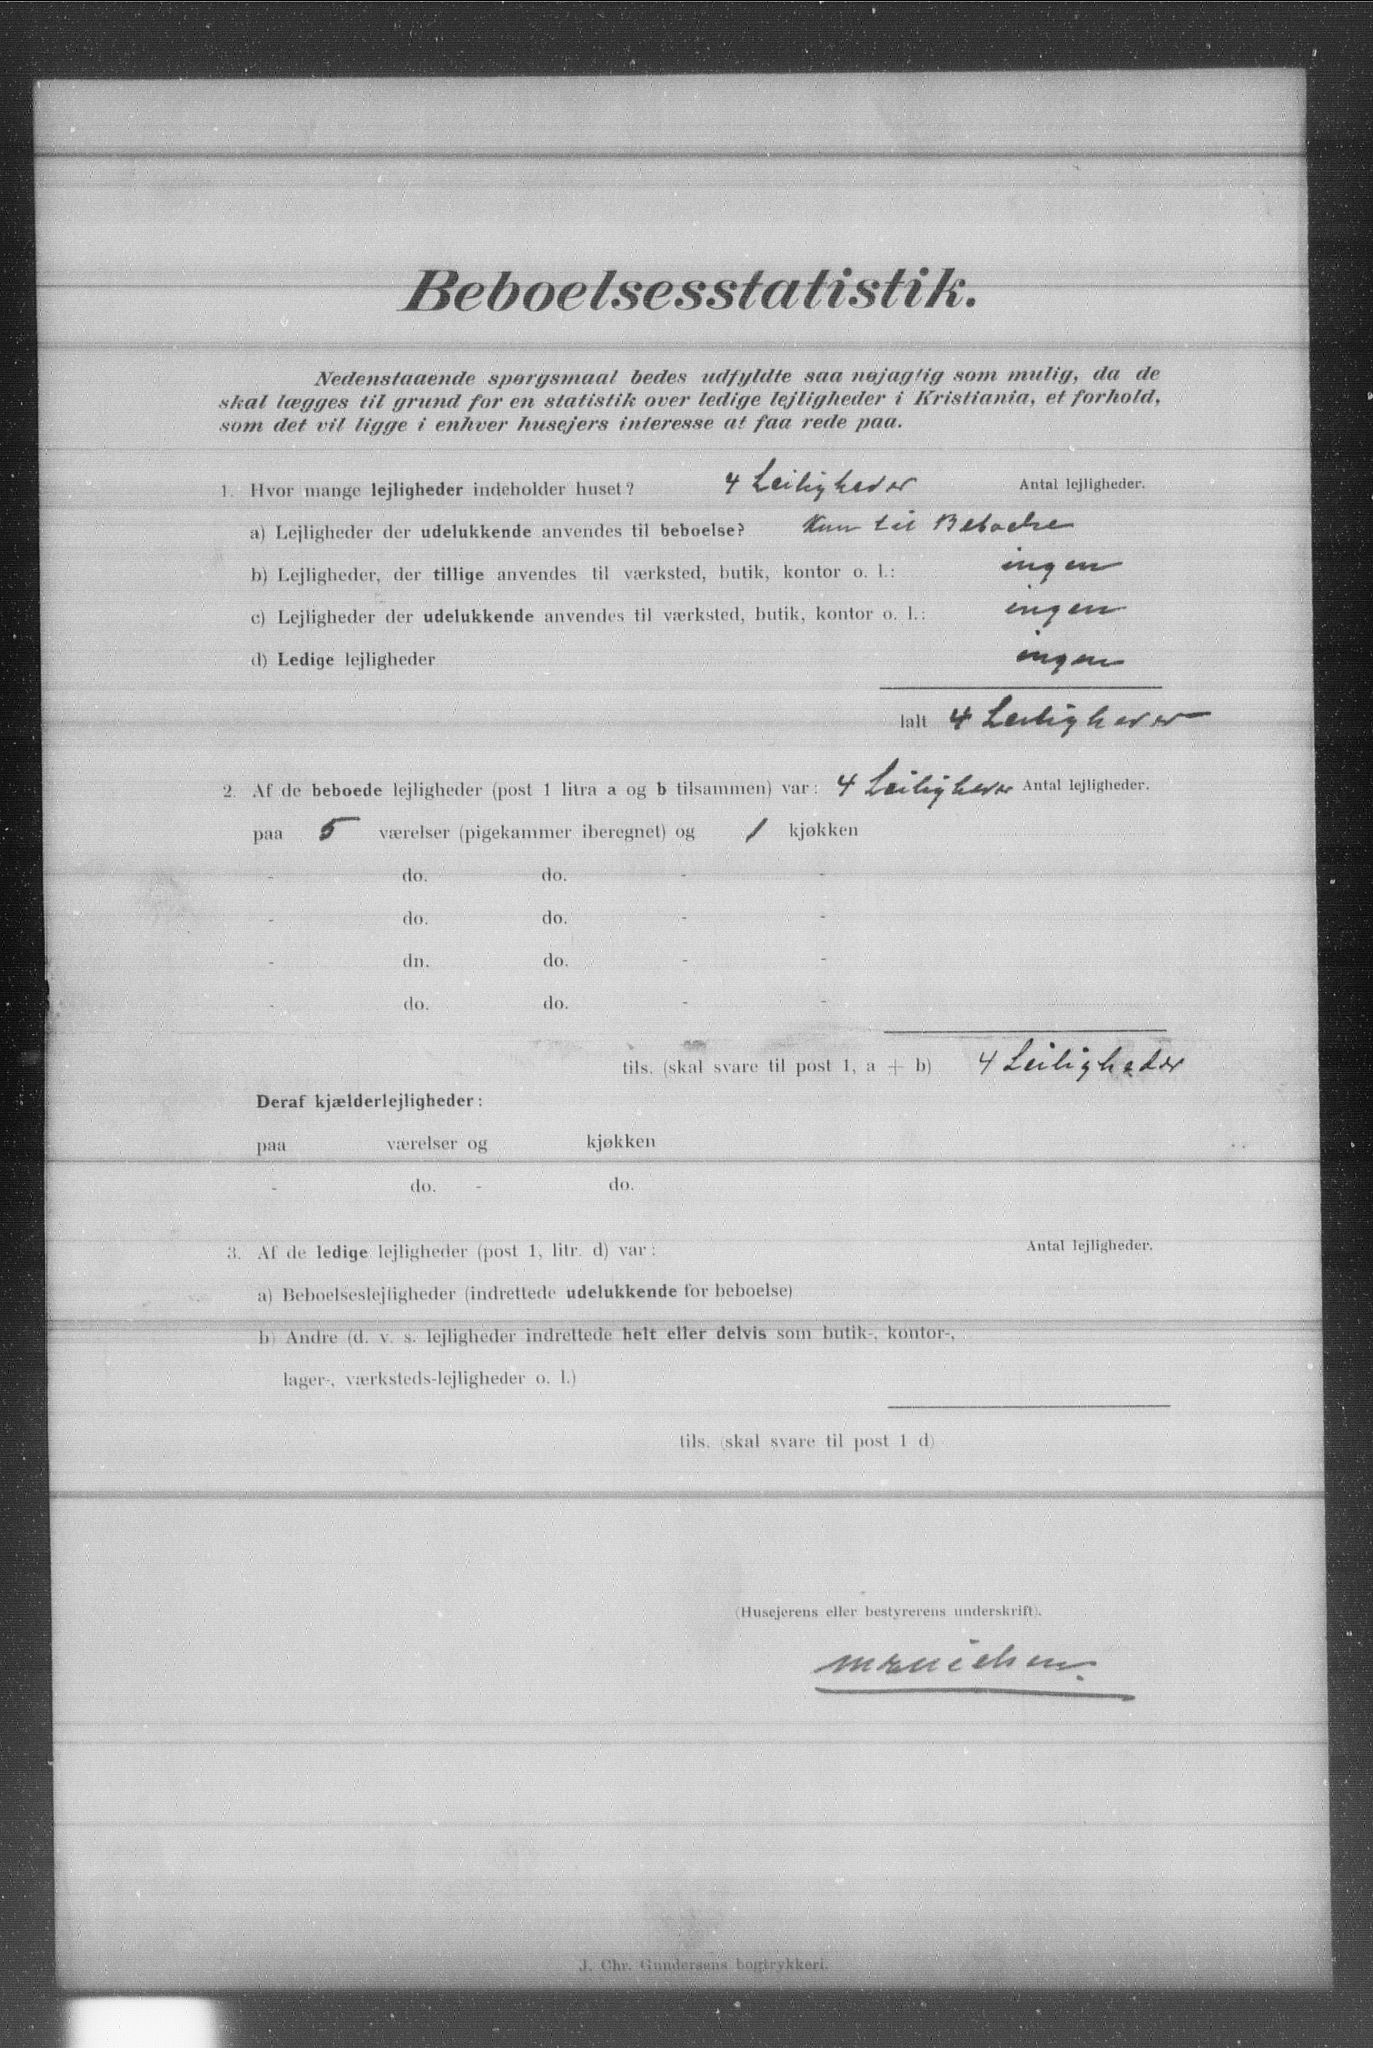 Beboelsesstatistik.
Nedenstaaende spørgsmaal bedes udfyldte saa nøjagtig som mulig, da de
skal lægges til grund for en statistik over ledige lejligheder i Kristiania, et forhold,
som det vil ligge i enhver husejers interesse at faa rede paa.
1. Hvor mange lejligheder indeholder huset? 4 Leiligheder Antal lejligheder.
a) Lejligheder der udelukkende anvendes til beboelse? Kun til
b) Lejligheder, der tillige anvendes til værksted, butik, kontor o. l.: ingen
c) Lejligheder der udelukkende anvendes til værksted, butik, kontor o. l.: ingen
d) Ledige lejligheder ingen
Ialt 4 Leiligheder
2. Af de beboede lejligheder (post 1 litra a og b tilsammen) var: 4 Leiligheder Antal lejligheder.
paa 5 værelser (pigekammer iberegnet) og 1 kjøkken
- do. do. - -
- do. do. - -
- dn. do. - -
- do. do. - -
tils. (skal svare til post 1, a + b) 4 Leiligheder
Deraf kjælderlejligheder:
paa værelser og kjøkken
- do. - do.
3. Af de ledige lejligheder (post 1, litr. d) var: Antal lejligheder.
a) Beboelseslejligheder (indrettede udelukkende for beboelse)
b) Andre (d. v. s. lejligheder indrettede helt eller delvis som butik-, kontor-,
lager-, værksteds-lejligheder o. l.)
tils. (skal svare til post 1 d)
(Husejerens eller bestyrerens underskrift).
J. Chr. Gundersens bogtrykkeri.